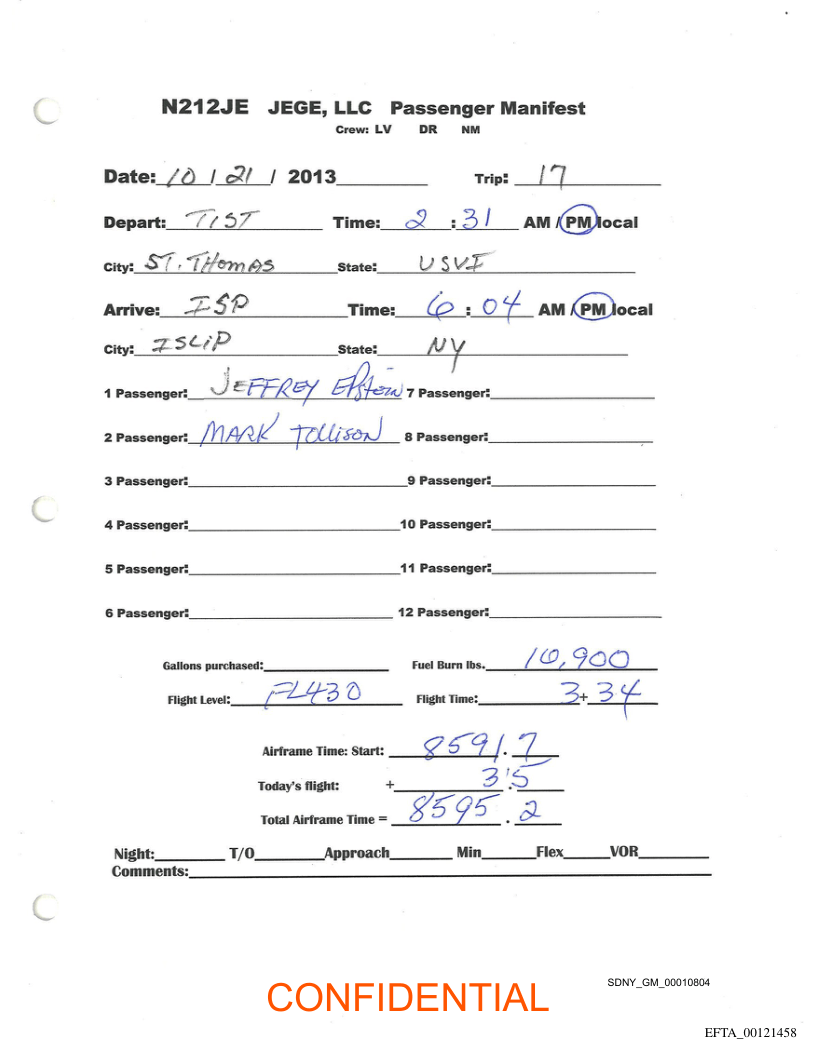 N212JE JEGE, LLC Passenger Manifest
Crew: LV DR NM
Date: 10 / 21 / 2013 Trip: 17
Depart: TIST Time: 2 : 31 AM / PM local
City: ST. THOMAS State: USVI
Arrive: ISP Time: 6 : 04 AM / PM local
City: ISLIP State: NY
1 Passenger: JEFFREY EPstein 7 Passenger:
2 Passenger: MARK TOLLISON 8 Passenger:
3 Passenger: 9 Passenger:
4 Passenger: 10 Passenger:
5 Passenger: 11 Passenger:
6 Passenger: 12 Passenger:
Gallons purchased: Fuel Burn lbs. 10,900
Flight Level: FL430 Flight Time: 3 + 34
Airframe Time: Start: 8591 . 7
Today's flight: + 3 . 5
Total Airframe Time = 8595 . 2
Night: T/O Approach Min Flex VOR
Comments:
SDNY_GM_00010804
CONFIDENTIAL
EFTA_00121458